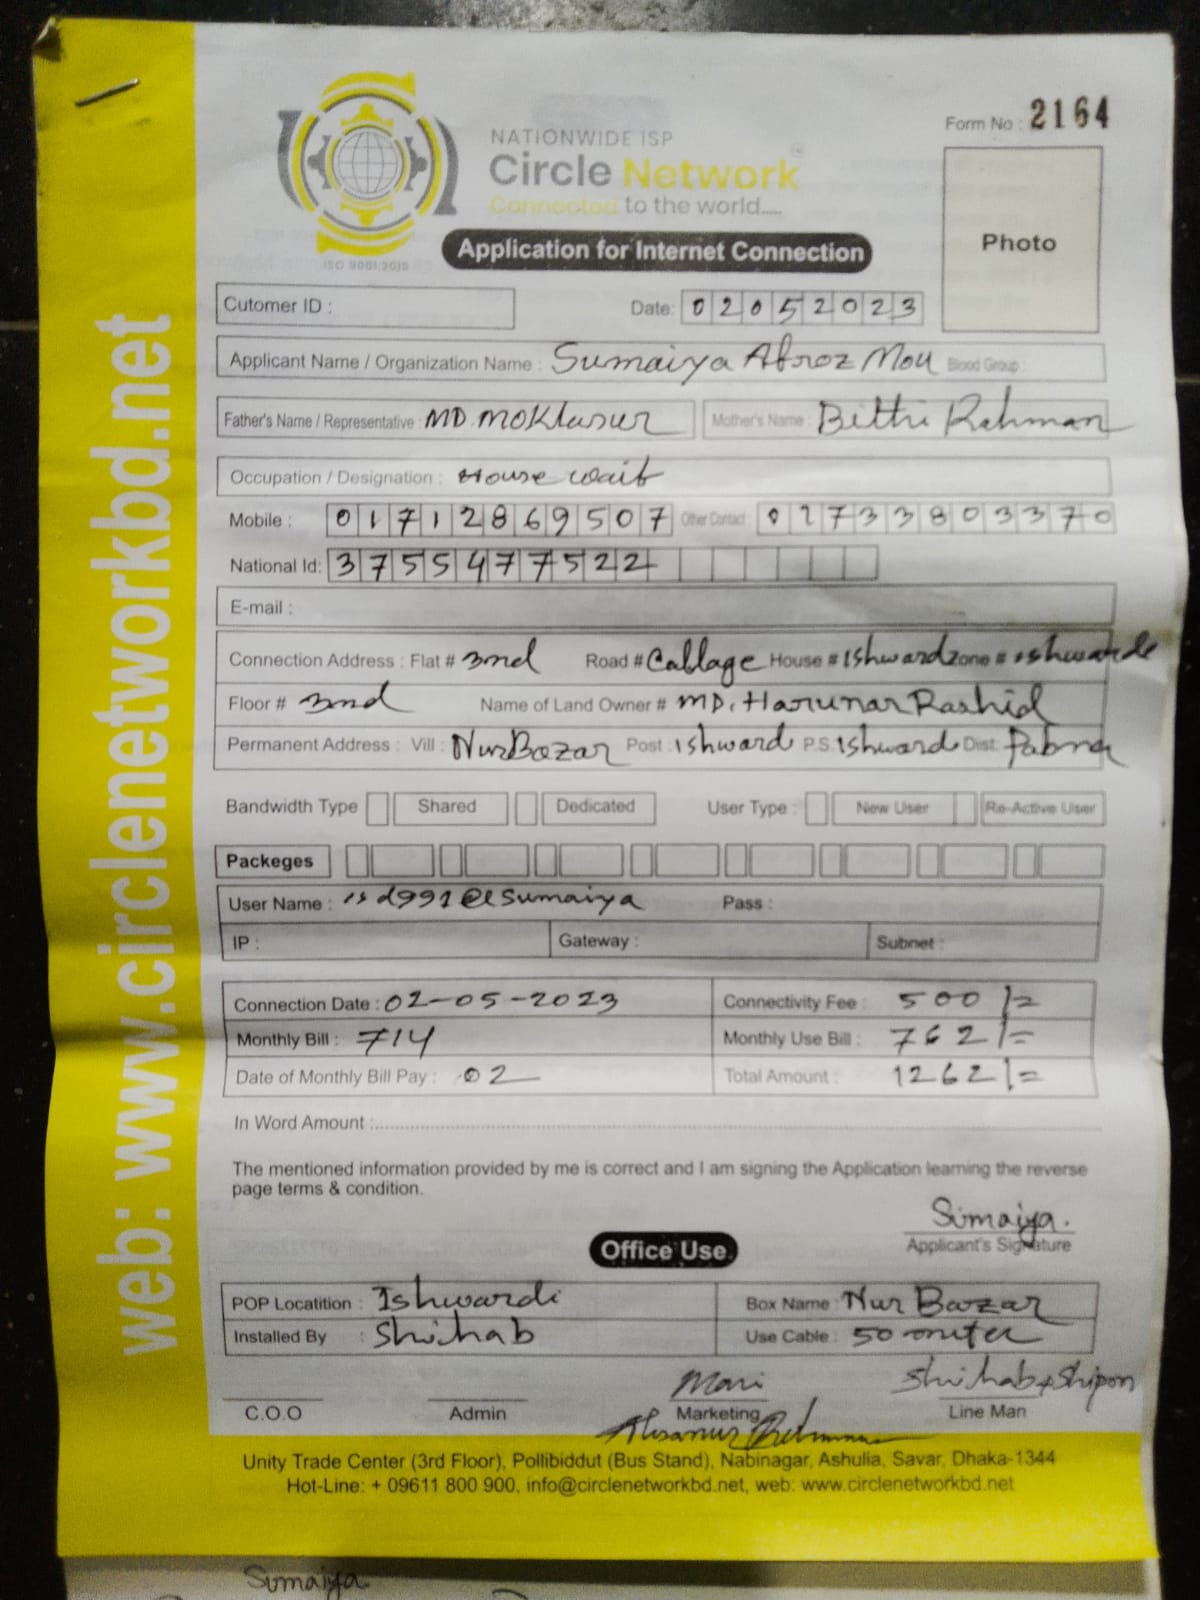 Form No : 2164
NATIONWIDE ISP
Circle Network
Connected to the world....
ISO 9001:2015
Application for Internet Connection
Photo
Cutomer ID :
Date: 02052023
Applicant Name / Organization Name : Sumaiya Afroz Mou Blood Group :
Father's Name / Representative : MD. Moklasur Mother's Name : Bithi Rahman
Occupation / Designation : House waif
Mobile : 01712869507 Other Contact : 01733803370
National Id: 3755477522
E-mail :
Connection Address : Flat # 3nd Road # Callage House # Ishward Zone # Ishwarde
Floor # 3nd Name of Land Owner # MD. Harunar Rashid
Permanent Address : Vill : Nur Bazar Post : Ishward P.S. Ishward Dist: Pabna
Bandwidth Type Shared Dedicated User Type : New User Re-Active User
Packeges
User Name : Pass :
IP : Gateway : Subnet :
Connection Date : 02-05-2023 Connectivity Fee : 500/=
Monthly Bill : 714 Monthly Use Bill : 762/=
Date of Monthly Bill Pay : 02 Total Amount : 1262/=
In Word Amount :
The mentioned information provided by me is correct and I am signing the Application learning the reverse
page terms & condition.
Sumaiya.
Applicant's Signature
Office Use
POP Locatition : Ishwardi Box Name : Nur Bazar
Installed By : Shihab Use Cable : 50 miter
Shihab + Shipon
C.O.O Admin Marketing Line Man
Unity Trade Center (3rd Floor), Pollibiddut (Bus Stand), Nabinagar, Ashulia, Savar, Dhaka-1344
Hot-Line: + 09611 800 900, info@circlenetworkbd.net, web: www.circlenetworkbd.net
web: www.circlenetworkbd.net
Sumaiya